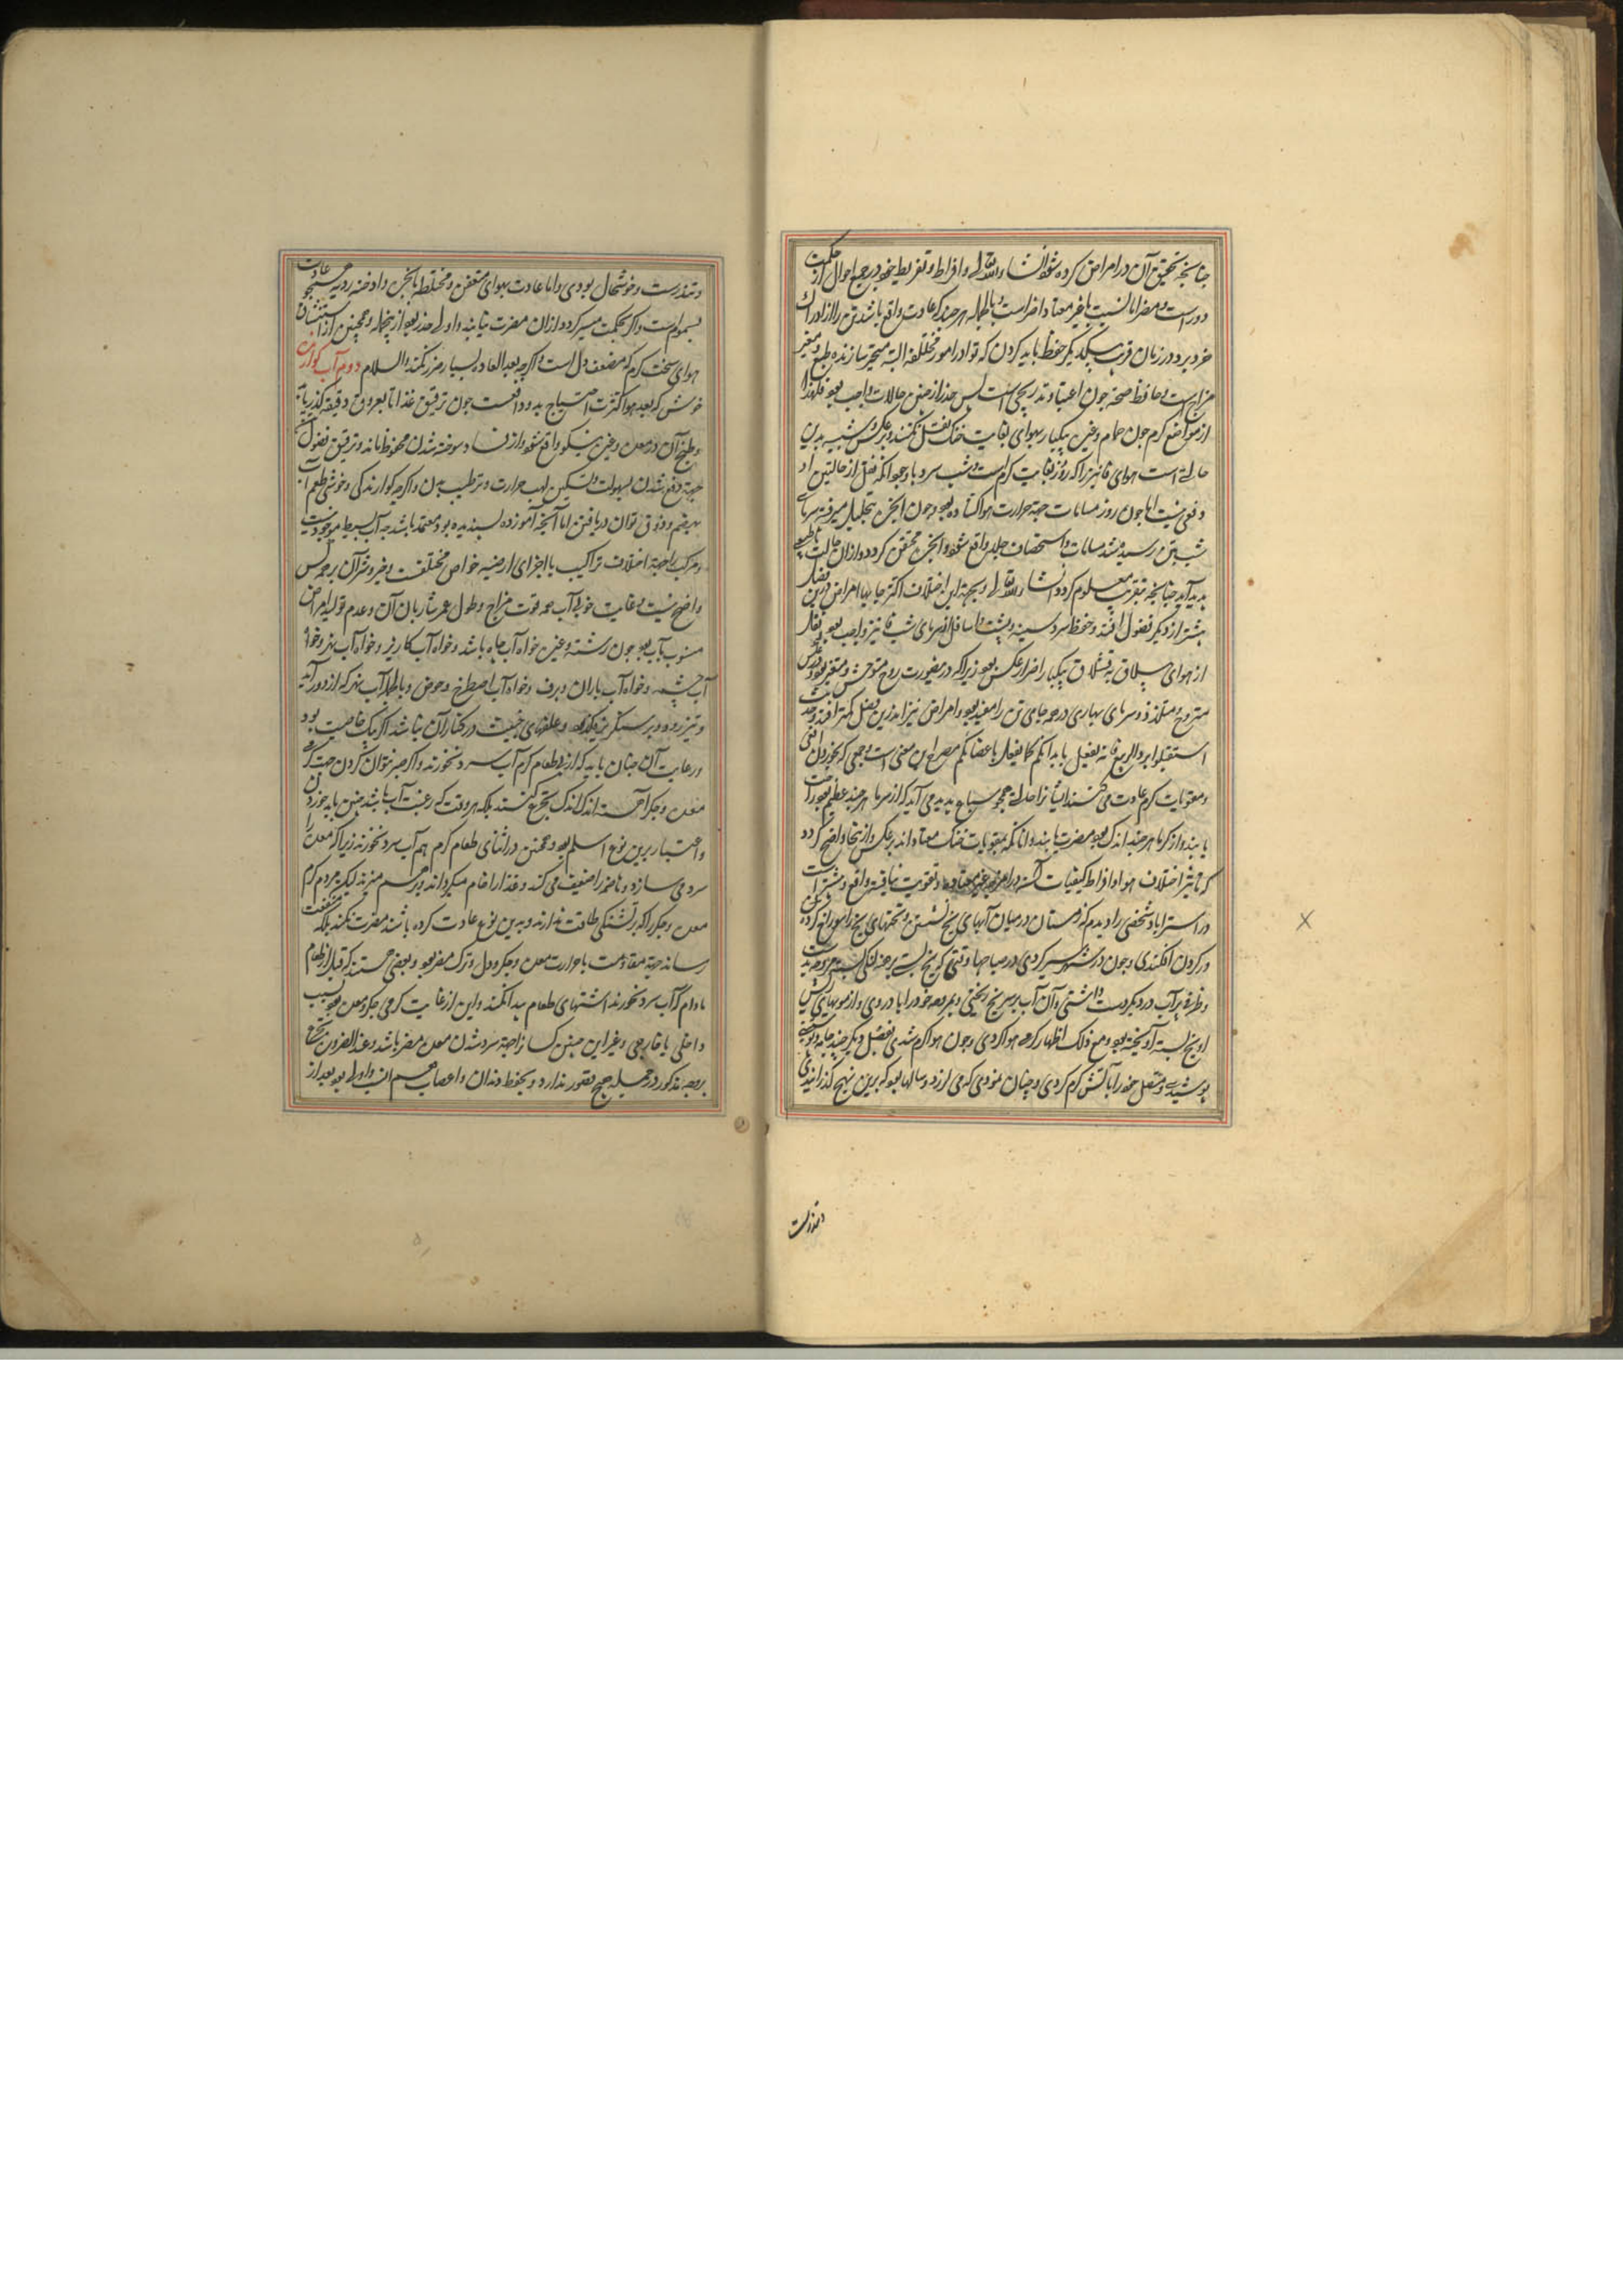 چنانچه تحقیق آن در امراض کرده شود انشاء الله تعالی و افراط و تفریط خود در جمیع احوال از حکمت
دور است و مضر اما نسبت با غیر معتاد اضر است و بالجمله هر چند که عادت واقع باشد تن را از ادراک
حر و برد در زمان قریب بیکدیگر حفظ باید کردن که توارد امور مختلفه البته متحیر سازنده طبع و مغیر
مزاج است و حافظ صحة چون اعتیاد تدریجی است پس حذر از چنین حالات واجب بود فلهذا
از مواضع گرم چون حمام و غیره بیکبار بهوای بغایت خنک نقل نکنند و بر عکس و شبیه بدین
حالت است هوای خانیز را که روز بغایت گرم است و شب سرد با وجود آنکه نقل از حالتین او
دفعی نیست اما چون روز مسامات جهة حرارت هوا گشاده بود و چون ابخره بتحلیل میرفته سرمای
شب بتن رسیده سد مسامات و استحصاف جلد واقع شود و ابخره محتقن گردد و از آن حالت نا طبیعی
پدید آید چنانچه بتقریب معلوم گردد انشاء الله تعالی و بجهة این اختلاف اکثر جایها امراض درین فصل
بیشتر از دیگر فصول افتد و حفظ سر و سینه و پشت و اسافل از سرمای شب خانیز واجب بود و نقل
از هوای ییلاق به قشلاق بیکبار اضرار عکس بود زیرا که درین صورت روح متوحش و متغیر بود و در عکس
متروح و متلذذ و سرمای بهاری در همه جای تن را مفید بود و امراض نیز ابدرین فصل کمتر افتد و حدیث
استقبلوا برد الربیع فانه یفعل بابدانکم کما یفعل باعضانکم مصرح این معنی است و جمعی که بخوردن افیون
و مقویات گرم عادت می کنند ایشان را حالتی همچو سباع پدید می آید که از سرما هر چند عظیم بود راحت
یابند و از گرما هر چند اندک بود مضرت یابند و آنانکه بمقویات خنک معتاد اند بر عکس و از اینجا واضح گردد
که تاثیر اختلاف هوا و افراط کیفیات آن در امزجه غیر معتاده و تقویت نیافته واقع و متمشی است
در استراباد شخصی را دیدم که زمستان در میان آبهای یخ نشستی و تختهای یخ را سوراخ کرده
در گردن افکندی و چون در شهر سیر کردی در صباحها وقتی که یخ بست برهنه لنگی بسته مروحه بدست
و ظرف پر آب در دیگر دست داشتی و آن آب بر سر یخ ریختی و بمروحه خود را باد زدی و از مویهای ریش
او یخ بسته آویخته بود و مع ذلک اظهار گرمی هوا کردی و چون هوا گرم شدی بفصل دیگر چند جامه و پوستین
پوشیدی و منقل خود را بآتش گرم کردی و چنان نمودی که می لرزد و سالها بود که برین نهج گذرانیدی
و تندرست
و تندرست و خوشحال بودی و اما عادت بهوای متعفن و مختلط با بخره و ادخنه ردیه همچو عادت
بسموم است و اگر بحکمت میسر گردد از آن مضرت نیابند و اولی حذر بود از جمله و همچنین از استنشاق
هوای سخت گرم که مضعف دل است و اگر چه بعد العاده بسیار ضرر نکند والسلام دوم آب گوارنده
خوش که بعد هوا کثرت احتیاج بدو واقعست چون ترقیق غذا تا بعروق دقیقه گذر یابد
و طبخ آن در معده و غیره نیکو واقع شود و از فساد و سوخته شدن محفوظ ماند و ترقیق فضول تا
جهة دفع شدن بسهولت و تسکین لهب حرارت و ترطیب بدن و اگر چه گوارندگی و خوشی طعم آب
بهضم و ذوق توان دریافتن اما آنچه آموزده پسندیده بود معتمد باشد چه آب بسیط موجود نیست
و مرکب را جهة اختلاف تراکیب با اجزای ارضیه خواص مختلفست و خیر و شر آن بر همه کس
واضح نیست و غایت خوبی آب همه قوت مزاج و طول عمر شاربان آن و عدم تولید امراض
منسوب بآب بود چون رشته و غیره خواه آب چاه باشد و خواه آب کاریز و خواه آب نهر و خواه
آب چشمه و خواه آب باران و برف و خواه آب اصطخ و حوض و بالجمله آب نهر که از دور آید
و تیز رود و بر سنگریزه گذرد و علفهای خبیث در کنار آن نباشد اکثر نیک خاصیت بود
و رعایت آن چنان باید که از پی طعام گرم آب سرد نخورند و اگر صبر نتوان کردن جهت گرمی
معده و جگر آهسته اندک اندک تجرع کنند بلکه هر وقت که رغبت آب باشد چنین باید خوردن
و اعتیاد برین نوع اسلم بود و همچنین در اثنای طعام گرم هم آب سرد نخورند زیرا که معده را
سرد می سازد و هاضمه را ضعیف می کند و غذا را خام میگرداند و بر هم میزند لیکن مردم گرم
معده و جگر را که بر تشنگی طاقت ندارند و بدین نوع عادت کرده باشند مضرت نکند بلکه منفعت
رساند جهة مقاومت با حرارت معده و جگر و دل و ترک مضر بود و بعضی هستند که قبل از طعام
مادام که آب سرد نخورند اشتهای طعام پیدا نکنند و این از غایت گرمی جگر و معده بود بسبب
داخلی یا خارجی و غیر این چنین کسان را جهة سرد شدن معده مضر باشد و عند الضروره تجرع
بوجه مذکور در جمله هیچ قصور ندارد و بحفظ دندان و اعصاب هم انسب و اولی بود بعد از